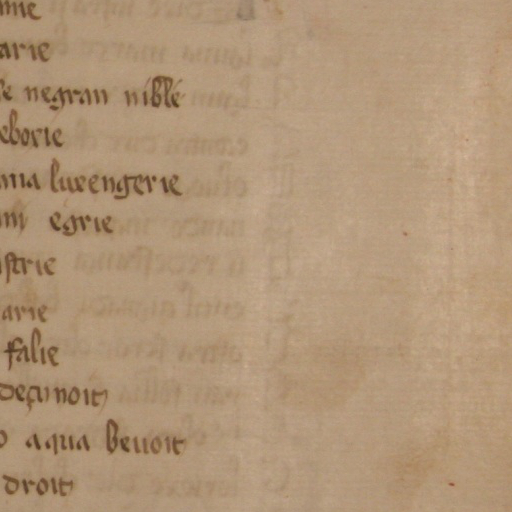 arie
negran nible
eborie
ma luxengerie
egrie
strie
arie
falie
deçunoit
aqua beuoit
droit